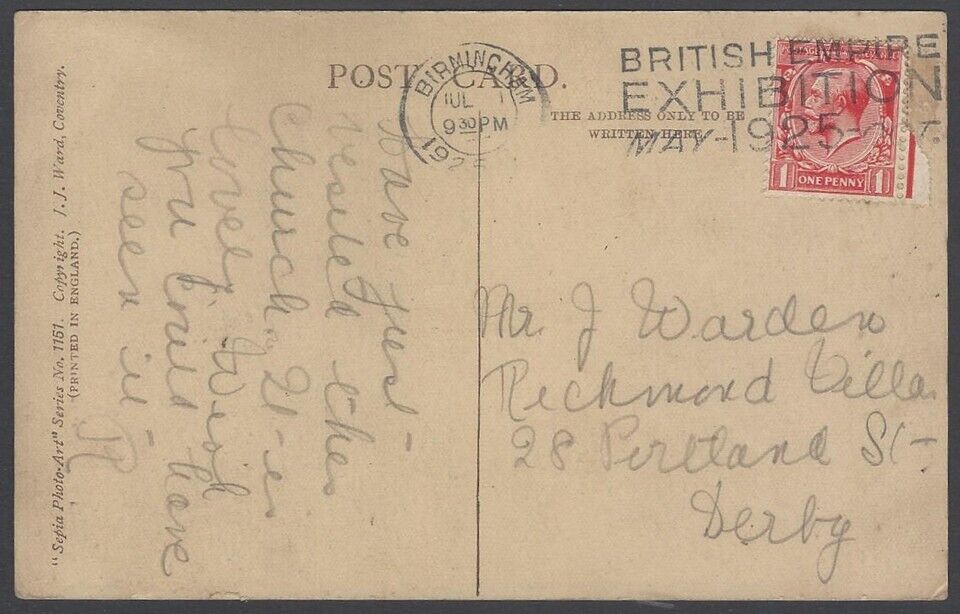 POST CARD.
THE ADDRESS ONLY TO BE
WRITTEN HERE.
BIRMINGHAM
JUL 1
9 30 PM
1925
BRITISH EMPIRE
EXHIBITION
MAY-1925-OCT.
ONE PENNY
1 1
Have just
visited this
church. It is
lovely. Wish
you could have
seen it
Mr. J Warden
Richmond Villa
28 Portland St
Derby
"Sepia Photo-Art" Series No. 1151. Copyright. J.J. Ward, Coventry.
(PRINTED IN ENGLAND.)